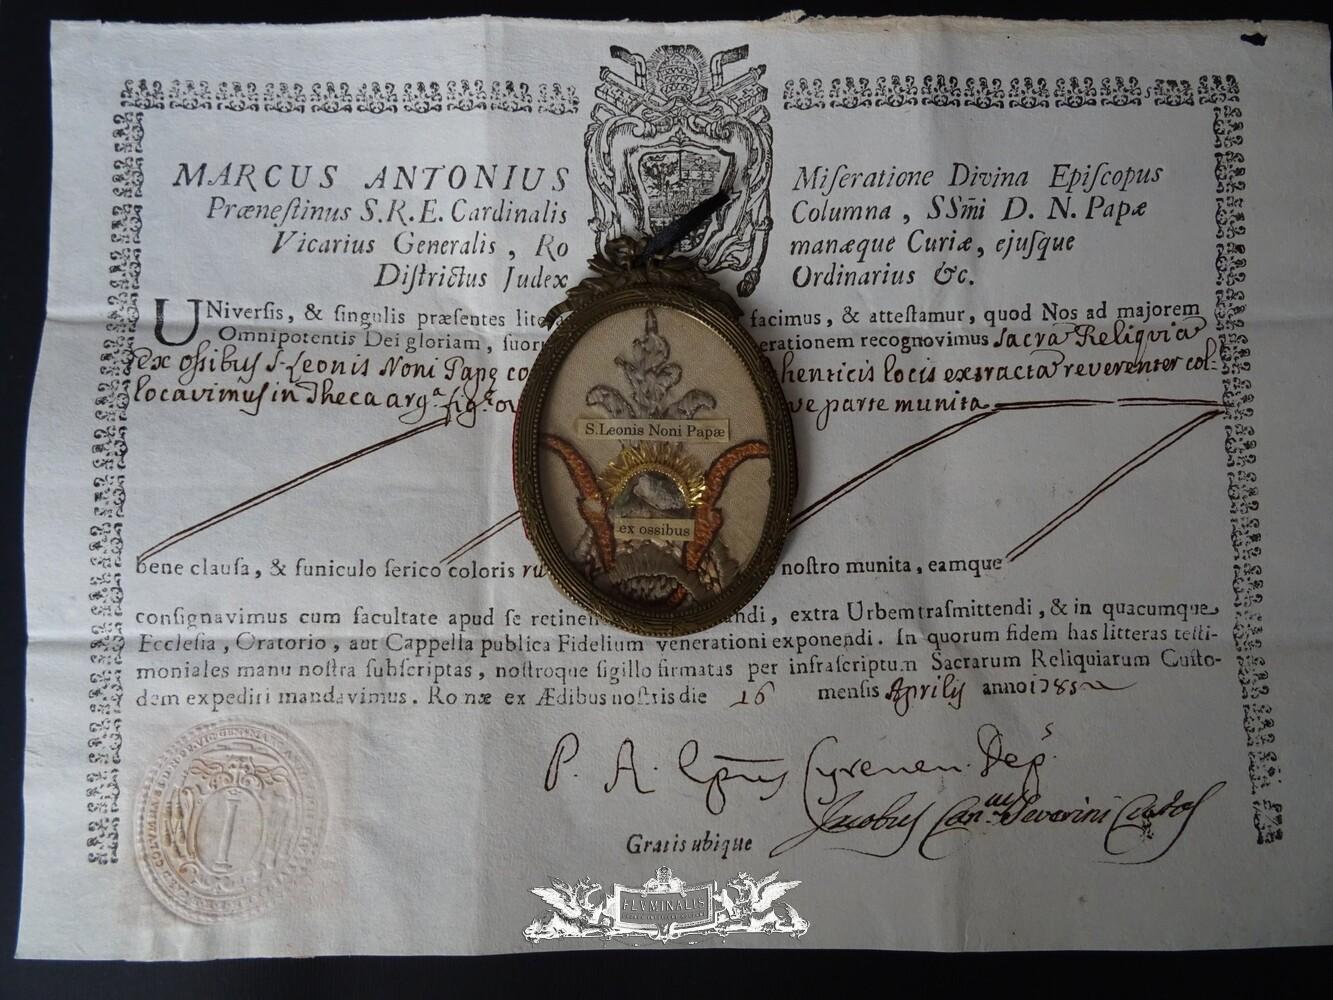 MARCUS ANTONIUS Miſeratione Divina Epiſcopus
Præneſtinus S.R.E. Cardinalis Columna, SSm̄i D. N. Papæ
Vicarius Generalis, Ro manæque Curiæ, ejuſque
Diſtrictus Judex Ordinarius &c.
UNiverſis, & ſingulis præſentes lite facimus, & atteſtamur, quod Nos ad majorem
Omnipotentis Dei gloriam, ſuor erationem recognovimus Sacra Reliquia
ex oſsibus S. Leonis Noni Papę co henticis locis extracta reverenter col-
locavimus in Theca arg.ᵃ fig. ov ve parte munita
S.Leonis Noni Papæ
ex ossibus
bene clauſa, & funiculo ſerico coloris ru noſtro munita, eamque
conſignavimus cum facultate apud ſe retine andi, extra Urbem traſmittendi, & in quacumque
Eccleſia, Oratorio, aut Cappella publica Fidelium venerationi exponendi. In quorum fidem has litteras teſti-
moniales manu noſtra ſubſcriptas, noſtroque ſigillo firmatas per infraſcriptum Sacrarum Reliquiarum Cuſto-
dem expediri mandavimus. Romæ ex Ædibus noſtris die 16 menſis Aprilis anno 1785
P. A. Ep̄us Cyrenen. Dep.ˢ
Jacobus Can.ᶜᵘˢ Severini Custos
Gratis ubique
FLVMINALIS